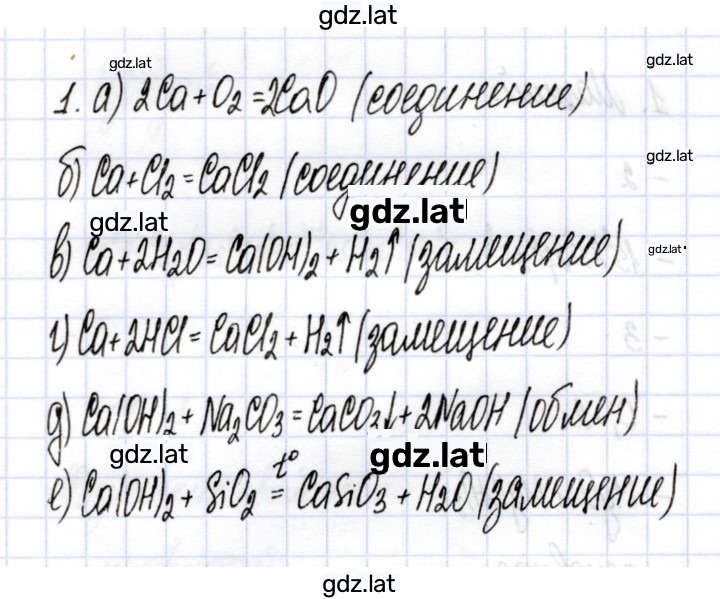 gdz.lat
gdz.lat
gdz.lat
1. а) 2Ca + O₂ = 2CaO (соединение)
gdz.lat
б) Ca + Cl₂ = CaCl₂ (соединение)
gdz.lat
gdz.lat
в) Ca + 2H₂O = Ca(OH)₂ + H₂↑ (замещение)
gdz.lat
г) Ca + 2HCl = CaCl₂ + H₂↑ (замещение)
д) Ca(OH)₂ + Na₂CO₃ = CaCO₃↓ + 2NaOH (обмен)
gdz.lat
gdz.lat
е) Ca(OH)₂ + SiO₂ =t° CaSiO₃ + H₂O (замещение)
gdz.lat